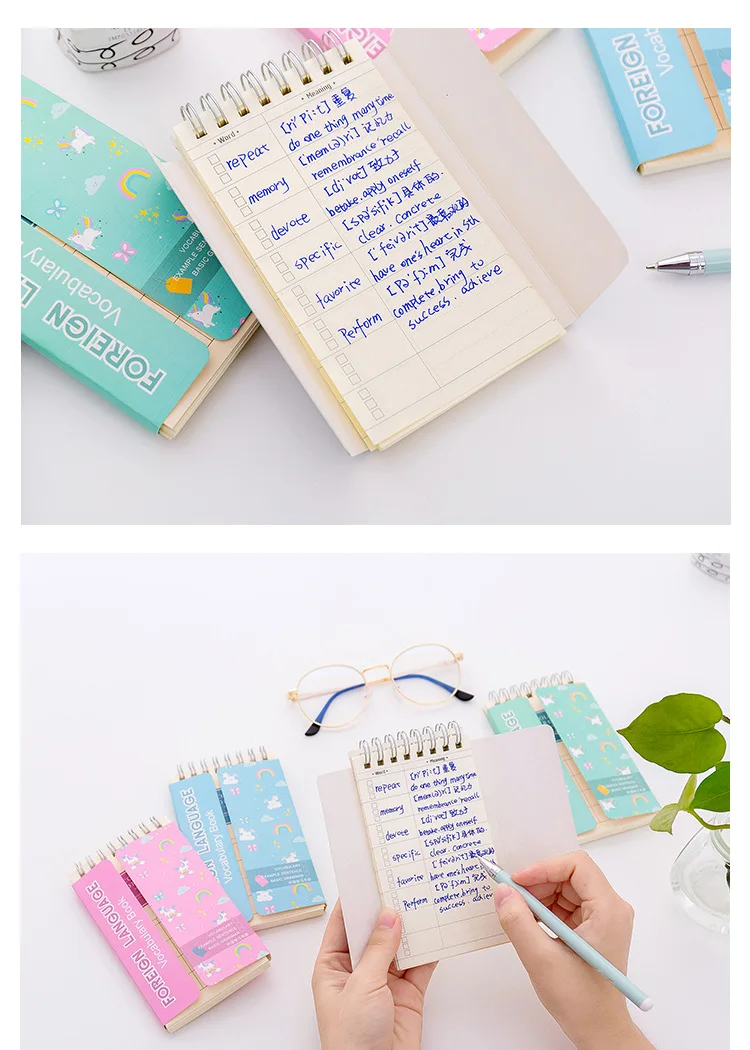 FOREIGN
Vocabulary
FOREIGN L
Vocabulary
VOCABU
EXAMPLE SEN
BASIC G
• Word •
• Meaning •
repeat
[ri'pi:t] 重复
do one thing many time
memory
[mem(ə)ri] 记忆力
remembrance recall
devote
[di'vot] 致力于
betake. apply oneself
specific
[spə'sifik] 具体的.
clear. concrete
favorite
['feivərit] 最喜欢的
have one's heart in sth
Perform
[pə'fɔ:m] 完成
complete. bring to
success. achieve
FOREIGN LANGUAGE
Vocabulary Book
N LANGUAGE
Vocabulary Book
EXAMPLE SENTENCE
BASIC GRAMMAR
LANGUAGE
• Word •
• Meaning •
repeat
[ri'pi:t] 重复
do one thing many time
memory
[mem(ə)ri] 记忆力
remembrance recall
devote
[di'vot] 致力于
betake. apply oneself
specific
[spə'sifik] 具体的.
clear. concrete
favorite
['feivərit]
have one's heart in
Perform
[pə'fɔ:m] 完成
complete. bring to
success. achieve